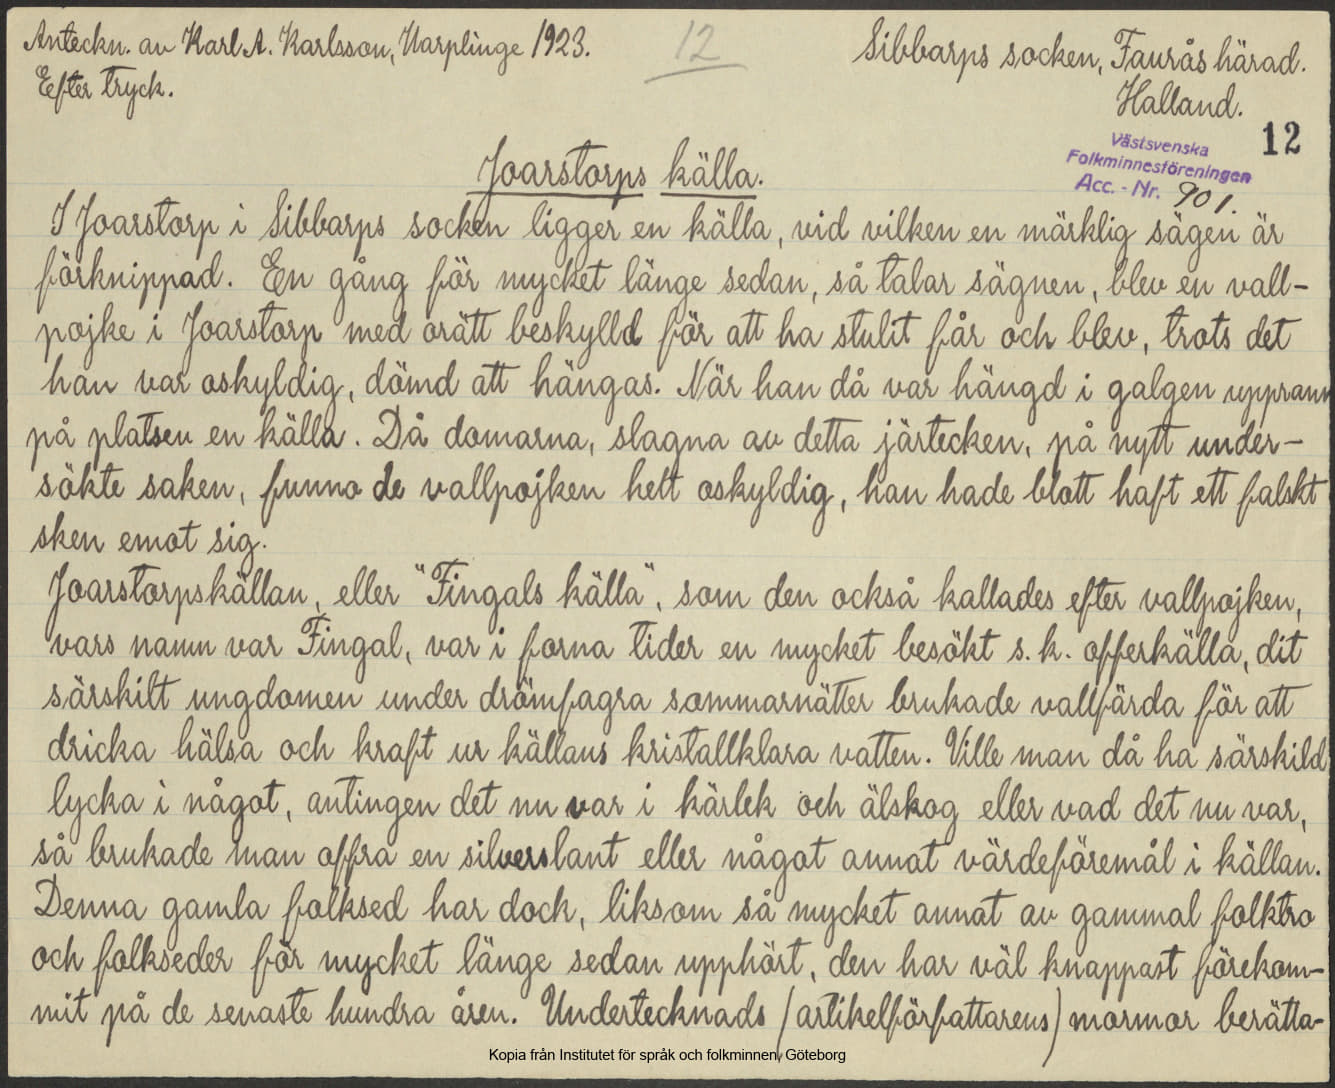 Anteckn. av Karl A. Karlsson, Harplinge 1923.
Efter tryck.
12
Sibbarps socken, Faurås härad.
Halland.
12
Västsvenska
Folkminnesföreningen
Acc. - Nr. 901.
Joarstorps källa.
I Joarstorp i Sibbarps socken ligger en källa, vid vilken en märklig sägen är
förknippad. En gång för mycket länge sedan, så talar sägnen, blev en vall-
pojke i Joarstorp med orätt beskylld för att ha stulit får och blev, trots det
han var oskyldig, dömd att hängas. När han då var hängd i galgen upprann
på platsen en källa. Då domarna, slagna av detta järtecken, på nytt under-
sökte saken, funno de vallpojken helt oskyldig, han hade blott haft ett falskt
sken emot sig.
Joarstorpskällan, eller "Fingals källa", som den också kallades efter vallpojken,
vars namn var Fingal, var i forna tider en mycket besökt s.k. offerkälla, dit
särskilt ungdomen under drömfagra sommarnätter brukade vallfärda för att
dricka hälsa och kraft ur källans kristallklara vatten. Ville man då ha särskild
lycka i något, antingen det nu var i kärlek och älskog eller vad det nu var,
så brukade man offra en silverslant eller något annat värdeföremål i källan.
Denna gamla folksed har dock, liksom så mycket annat av gammal folktro
och folkseder för mycket länge sedan upphört, den har väl knappast förekom-
mit på de senaste hundra åren. Undertecknads (artikelförfattarens) mormor berätta-
Kopia från Institutet för språk och folkminnen, Göteborg